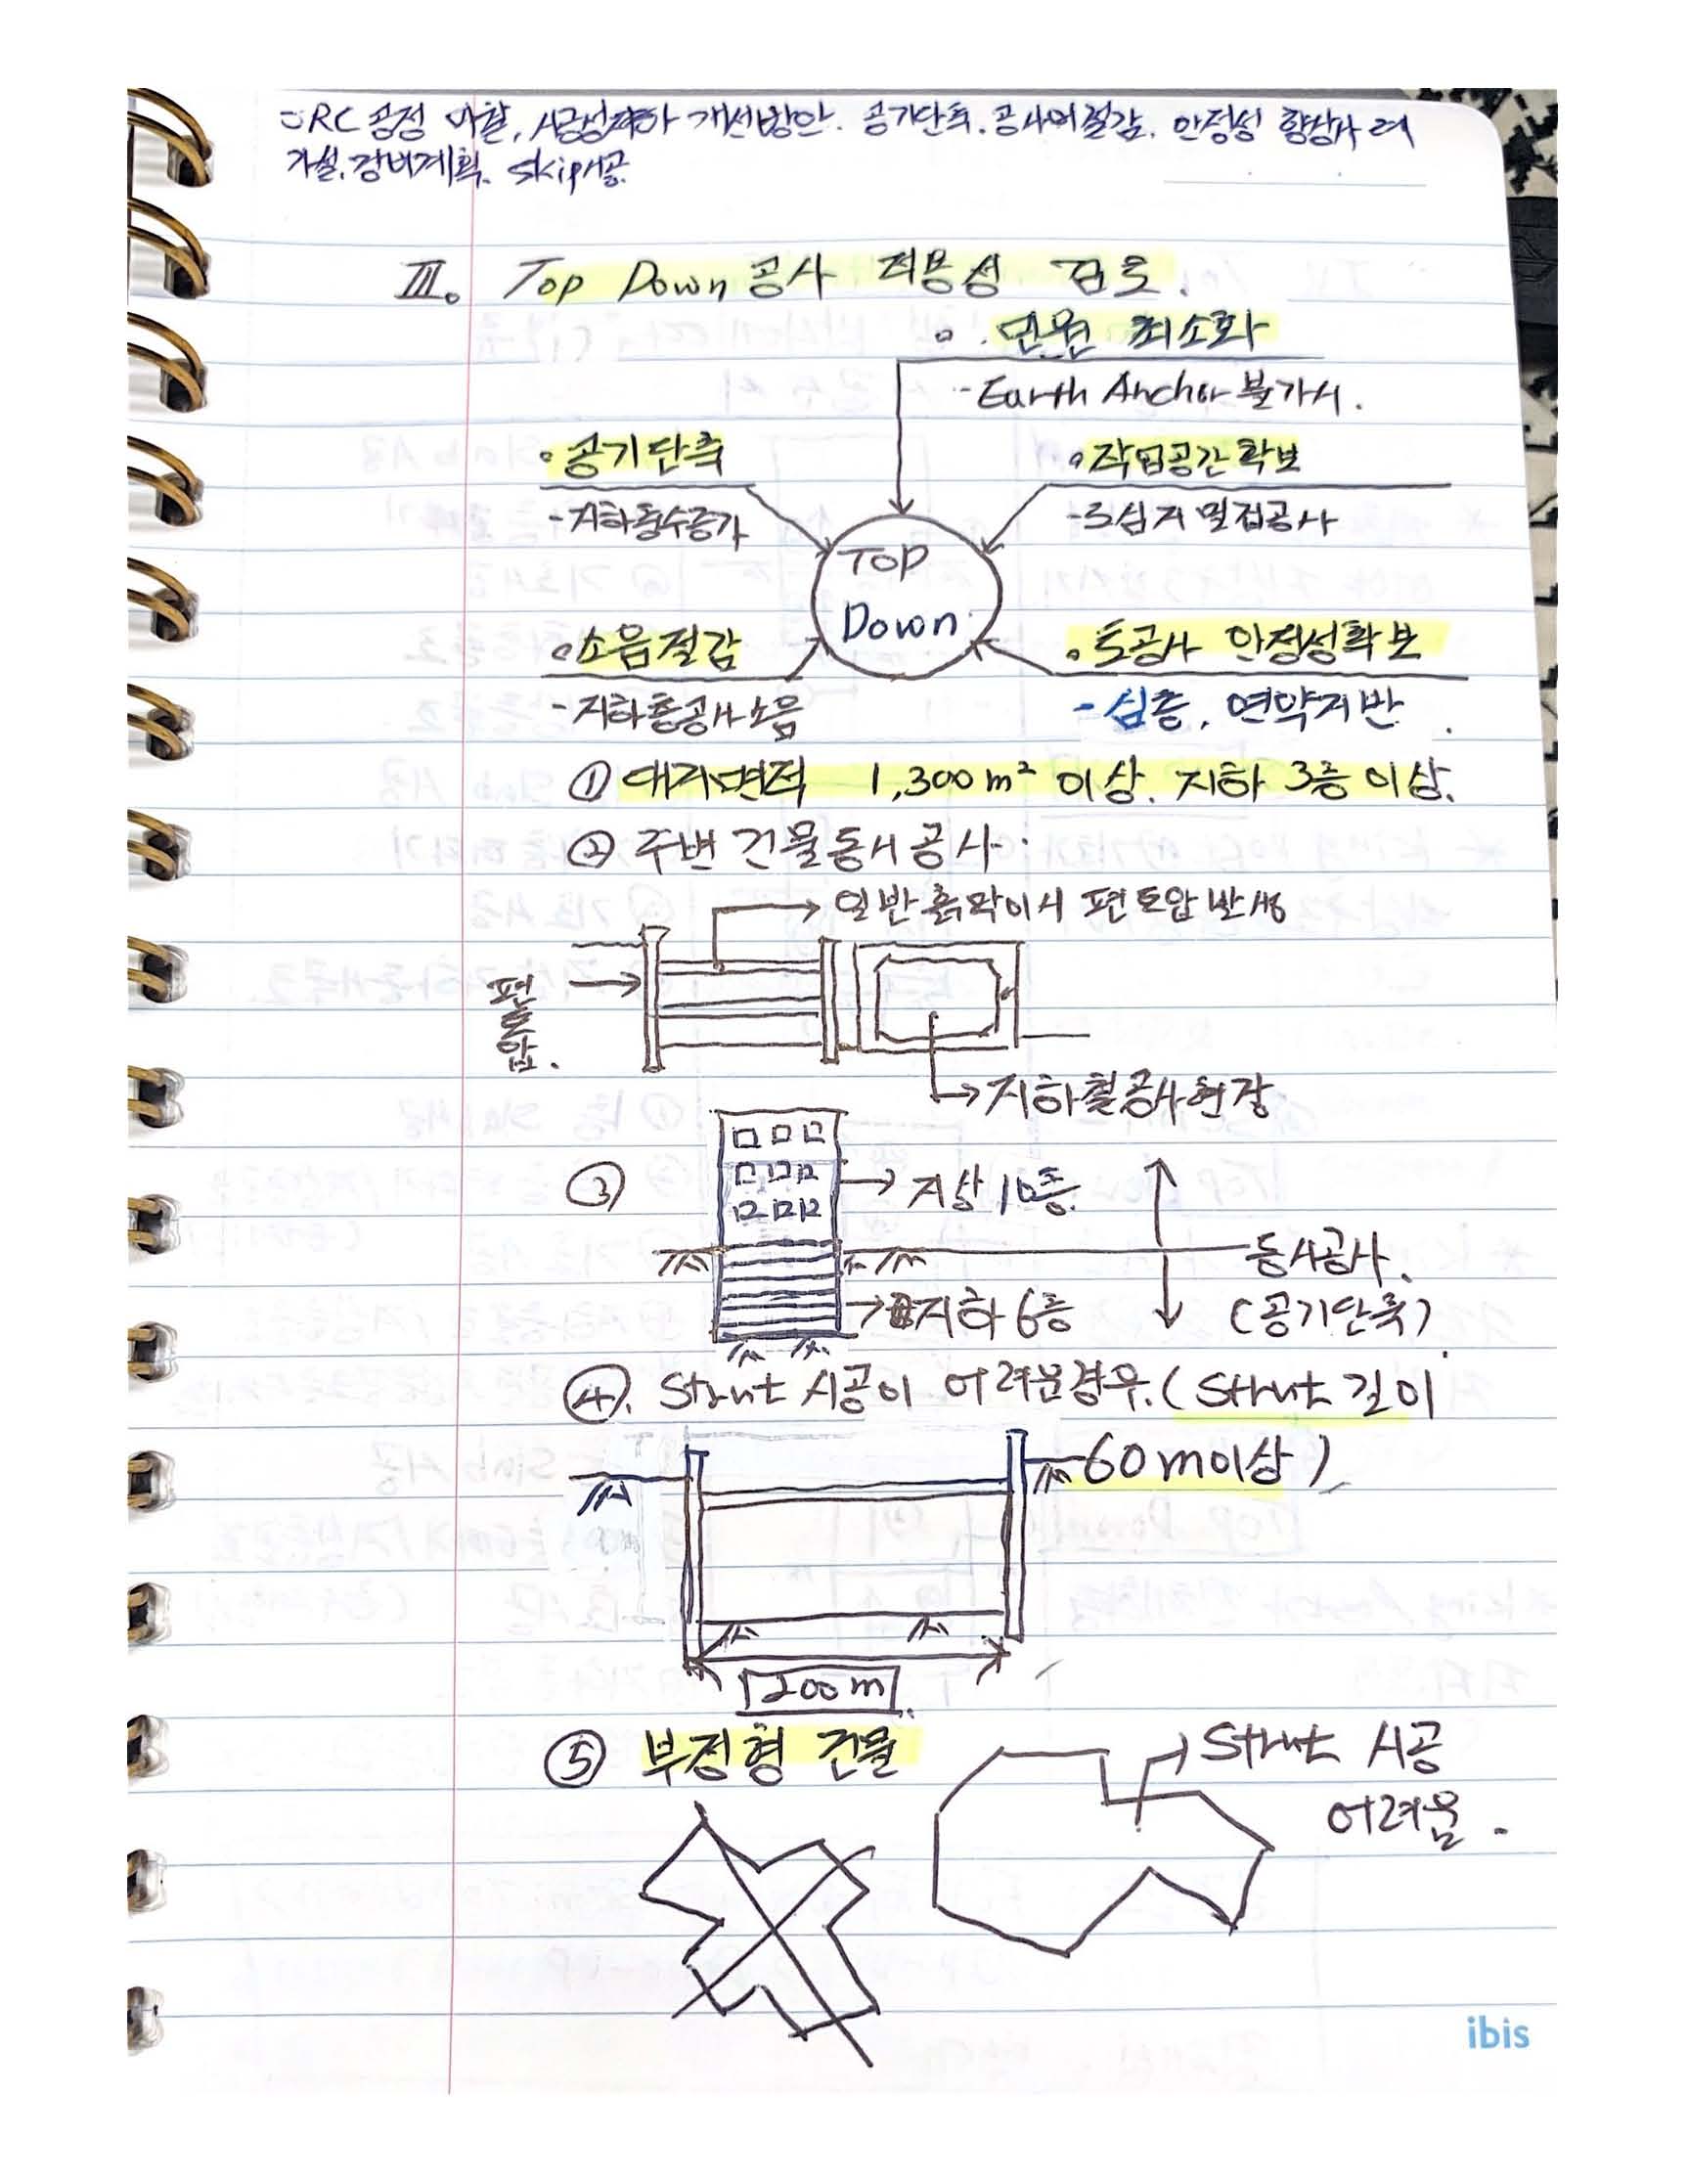 RC 공정 마찰, 시공성저하 개선방안. 공기단축. 공사비절감. 안정성 향상
가설.장비계획. Skip시공.
III. Top Down 공사 적용성 검토.
민원 최소화
- Earth Anchor 불가시.
공기단축
작업공간 확보
- 지하층수증가
- 도심지 밀집공사
TOP
Down
소음절감
토공사 안정성확보
- 지하층공사소음
- 심층, 연약지반
① 대지면적 1,300m² 이상. 지하 3층 이상.
② 주변 건물동시공사.
일반흙막이시 편토압 발생
편토압.
지하철공사현장
③
지상 10층.
동시공사.
지하 6층
(공기단축)
④. Strut 시공이 어려운경우. (Strut 길이
60m이상)
200m
⑤ 부정형 건물
Strut 시공
어려움.
ibis